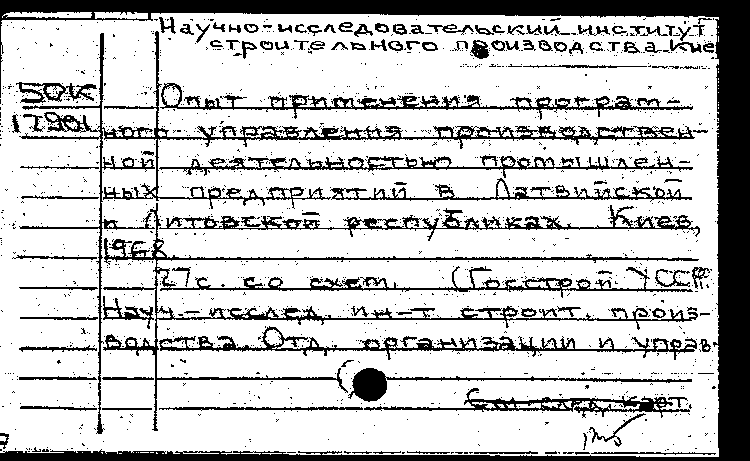 Научно-исследовательский институт
строительного производства Кие
50К
17901
Опыт применения програм-
ного управления производствен-
ной деятельностью промышлен-
ных предприятий в Латвийской
и Литовской республиках. Киев,
1968.
27с. со схем. (Госстрой УССР.
Науч.-исслед. ин-т строит. произ-
водства. Отд. организации и управ-
См. след. карт.